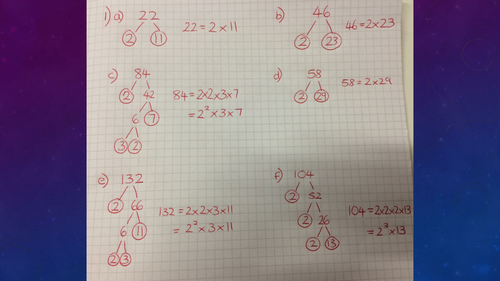 1) a) 22
2 11
22 = 2 × 11
b) 46
2 23
46 = 2 × 23
c) 84
2 42
6 7
3 2
84 = 2×2×3×7
= 2² × 3 × 7
d) 58
2 29
58 = 2 × 29
e) 132
2 66
6 11
2 3
132 = 2×2×3×11
= 2² × 3 × 11
f) 104
2 52
2 26
2 13
104 = 2×2×2×13
= 2³ × 13